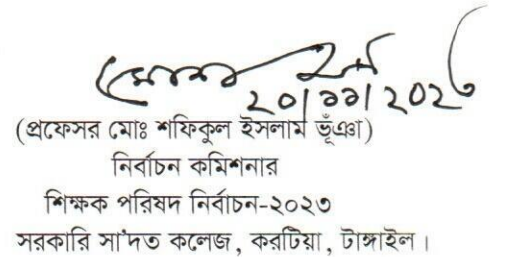 ২০/১১/২০২৩
(প্রফেসর মোঃ শফিকুল ইসলাম ভূঁঞা)
নির্বাচন কমিশনার
শিক্ষক পরিষদ নির্বাচন-২০২৩
সরকারি সা'দত কলেজ, করটিয়া, টাঙ্গাইল।